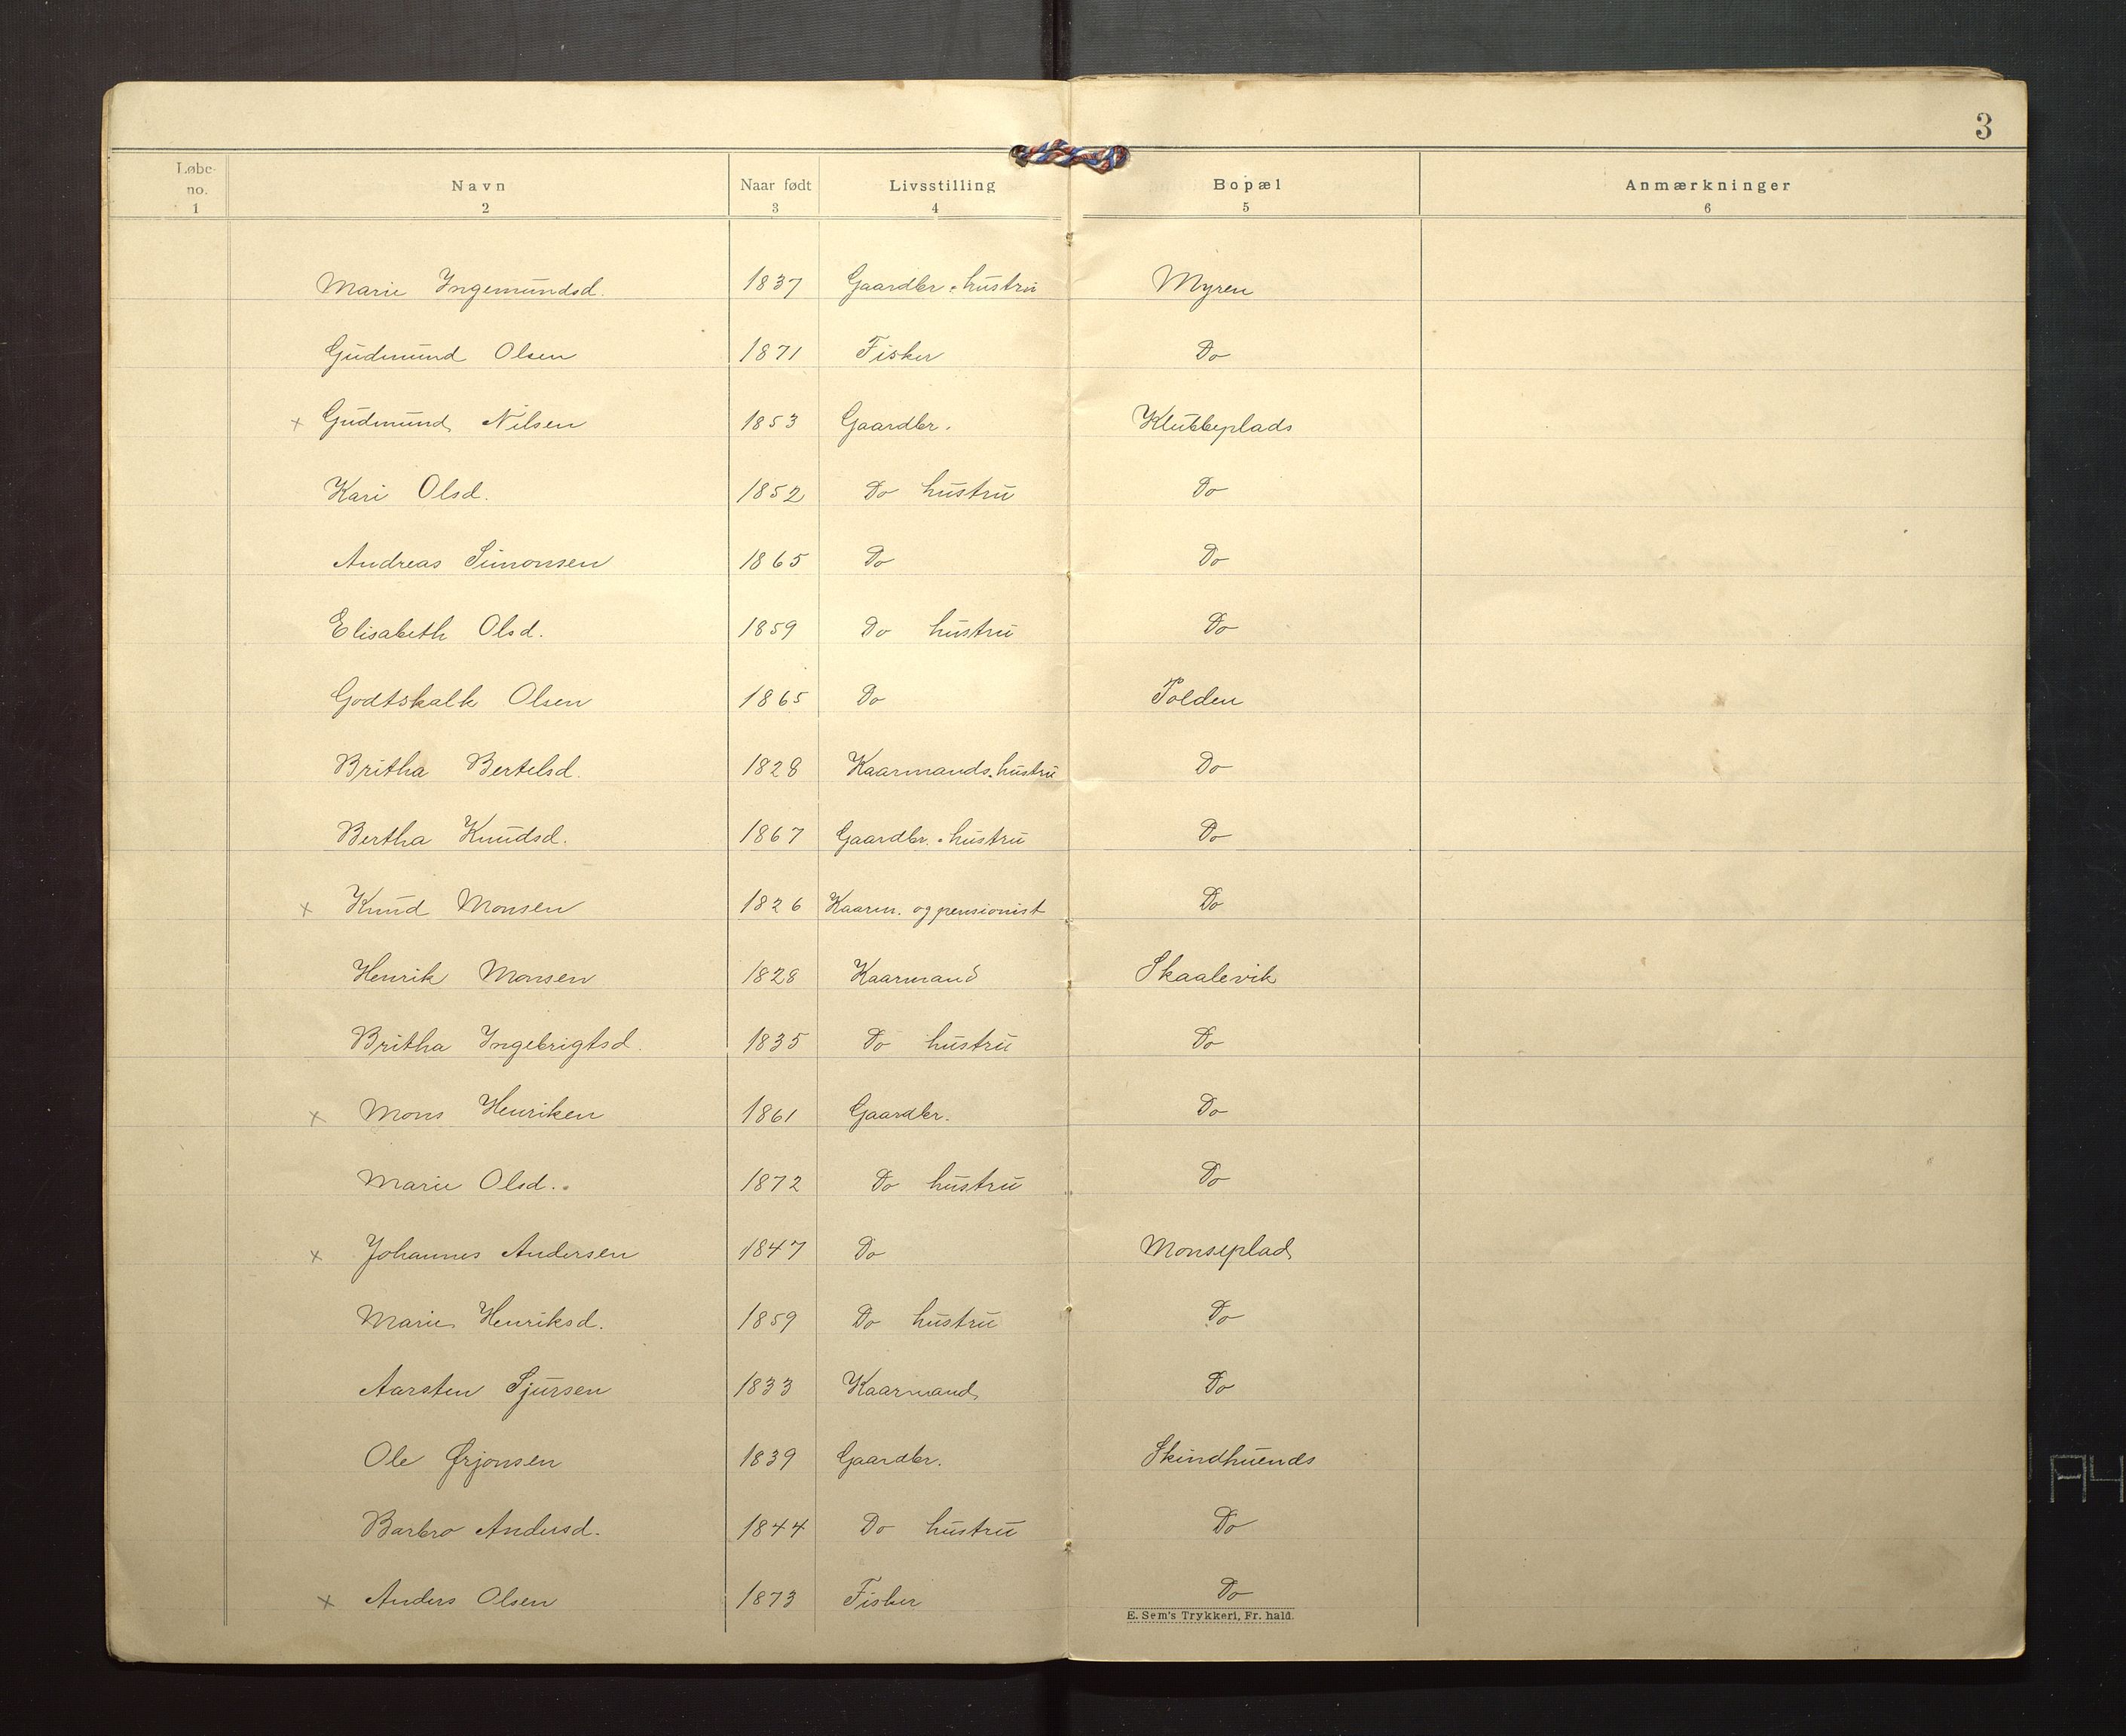 3
Løbe-no. Navn Naar født Livsstilling Bopæl Anmærkninger
1 2 3 4 5 6
Marie Ingemundsd. 1837 Gaardbr.hustru Myren
Gudmund Olsen 1871 Fisker Do
x Gudmund Nilsen 1853 Gaardbr. Klubbeplads
Kari Olsd. 1852 Do hustru Do
Andreas Simonsen 1865 Do Do
Elisabeth Olsd. 1859 Do hustru Do
Godtskalk Olsen 1865 Do Polden
Britha Bertelsd. 1828 Kaarmands.hustru Do
Bertha Knudsd. 1867 Gaardbr.hustru Do
x Knud Monsen 1826 Kaarm. og pensionist Do
Henrik Monsen 1828 Kaarmand Skaalevik
Britha Ingebrigtsd. 1835 Do hustru Do
x Mons Henriken 1861 Gaardbr. Do
Marie Olsd. 1872 Do hustru Do
x Johannes Andersen 1847 Do Monseplad
Marie Henriksd. 1859 Do hustru Do
Aarsten Sjursen 1833 Kaarmand Do
Ole Ørjonsen 1839 Gaardbr. Skindhuends
Barbro Andersd. 1844 Do hustru Do
x Anders Olsen 1873 Fisker Do
E. Sem's Trykkeri, Fr. hald.
A4